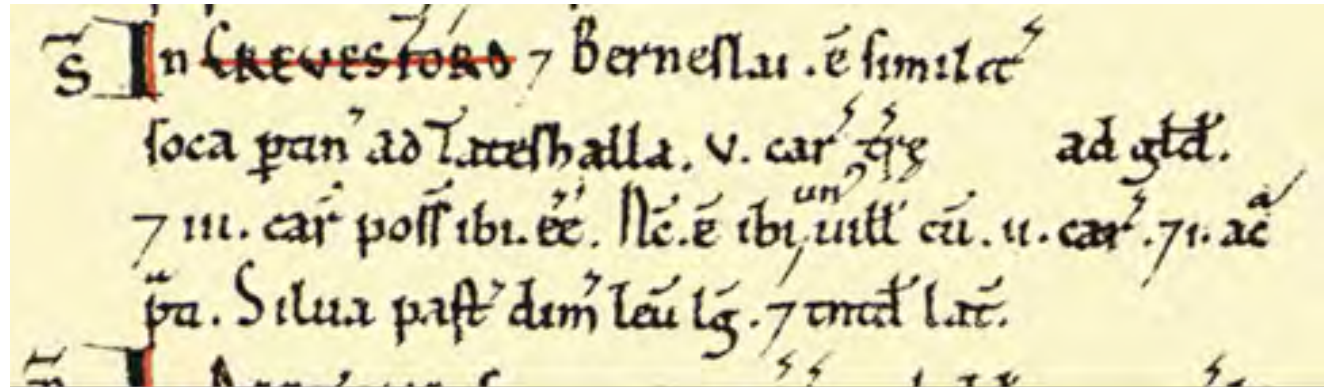 S̄ In CREVESFORD ⁊ Berneslai . ē similit̄
soca ꝑtin̄ ad Tateshalla . v . car̄ t̄ræ ad gld̄ .
⁊ iii . car̄ poss̄ ibi . ēē . Nc̄ . ē ibi un' uill̄ cū . ii . car̄ . ⁊ i . ac̄
p̄ti . Silua past̄ dim̄ leū lḡ . ⁊ tntd̄ lat̄ .